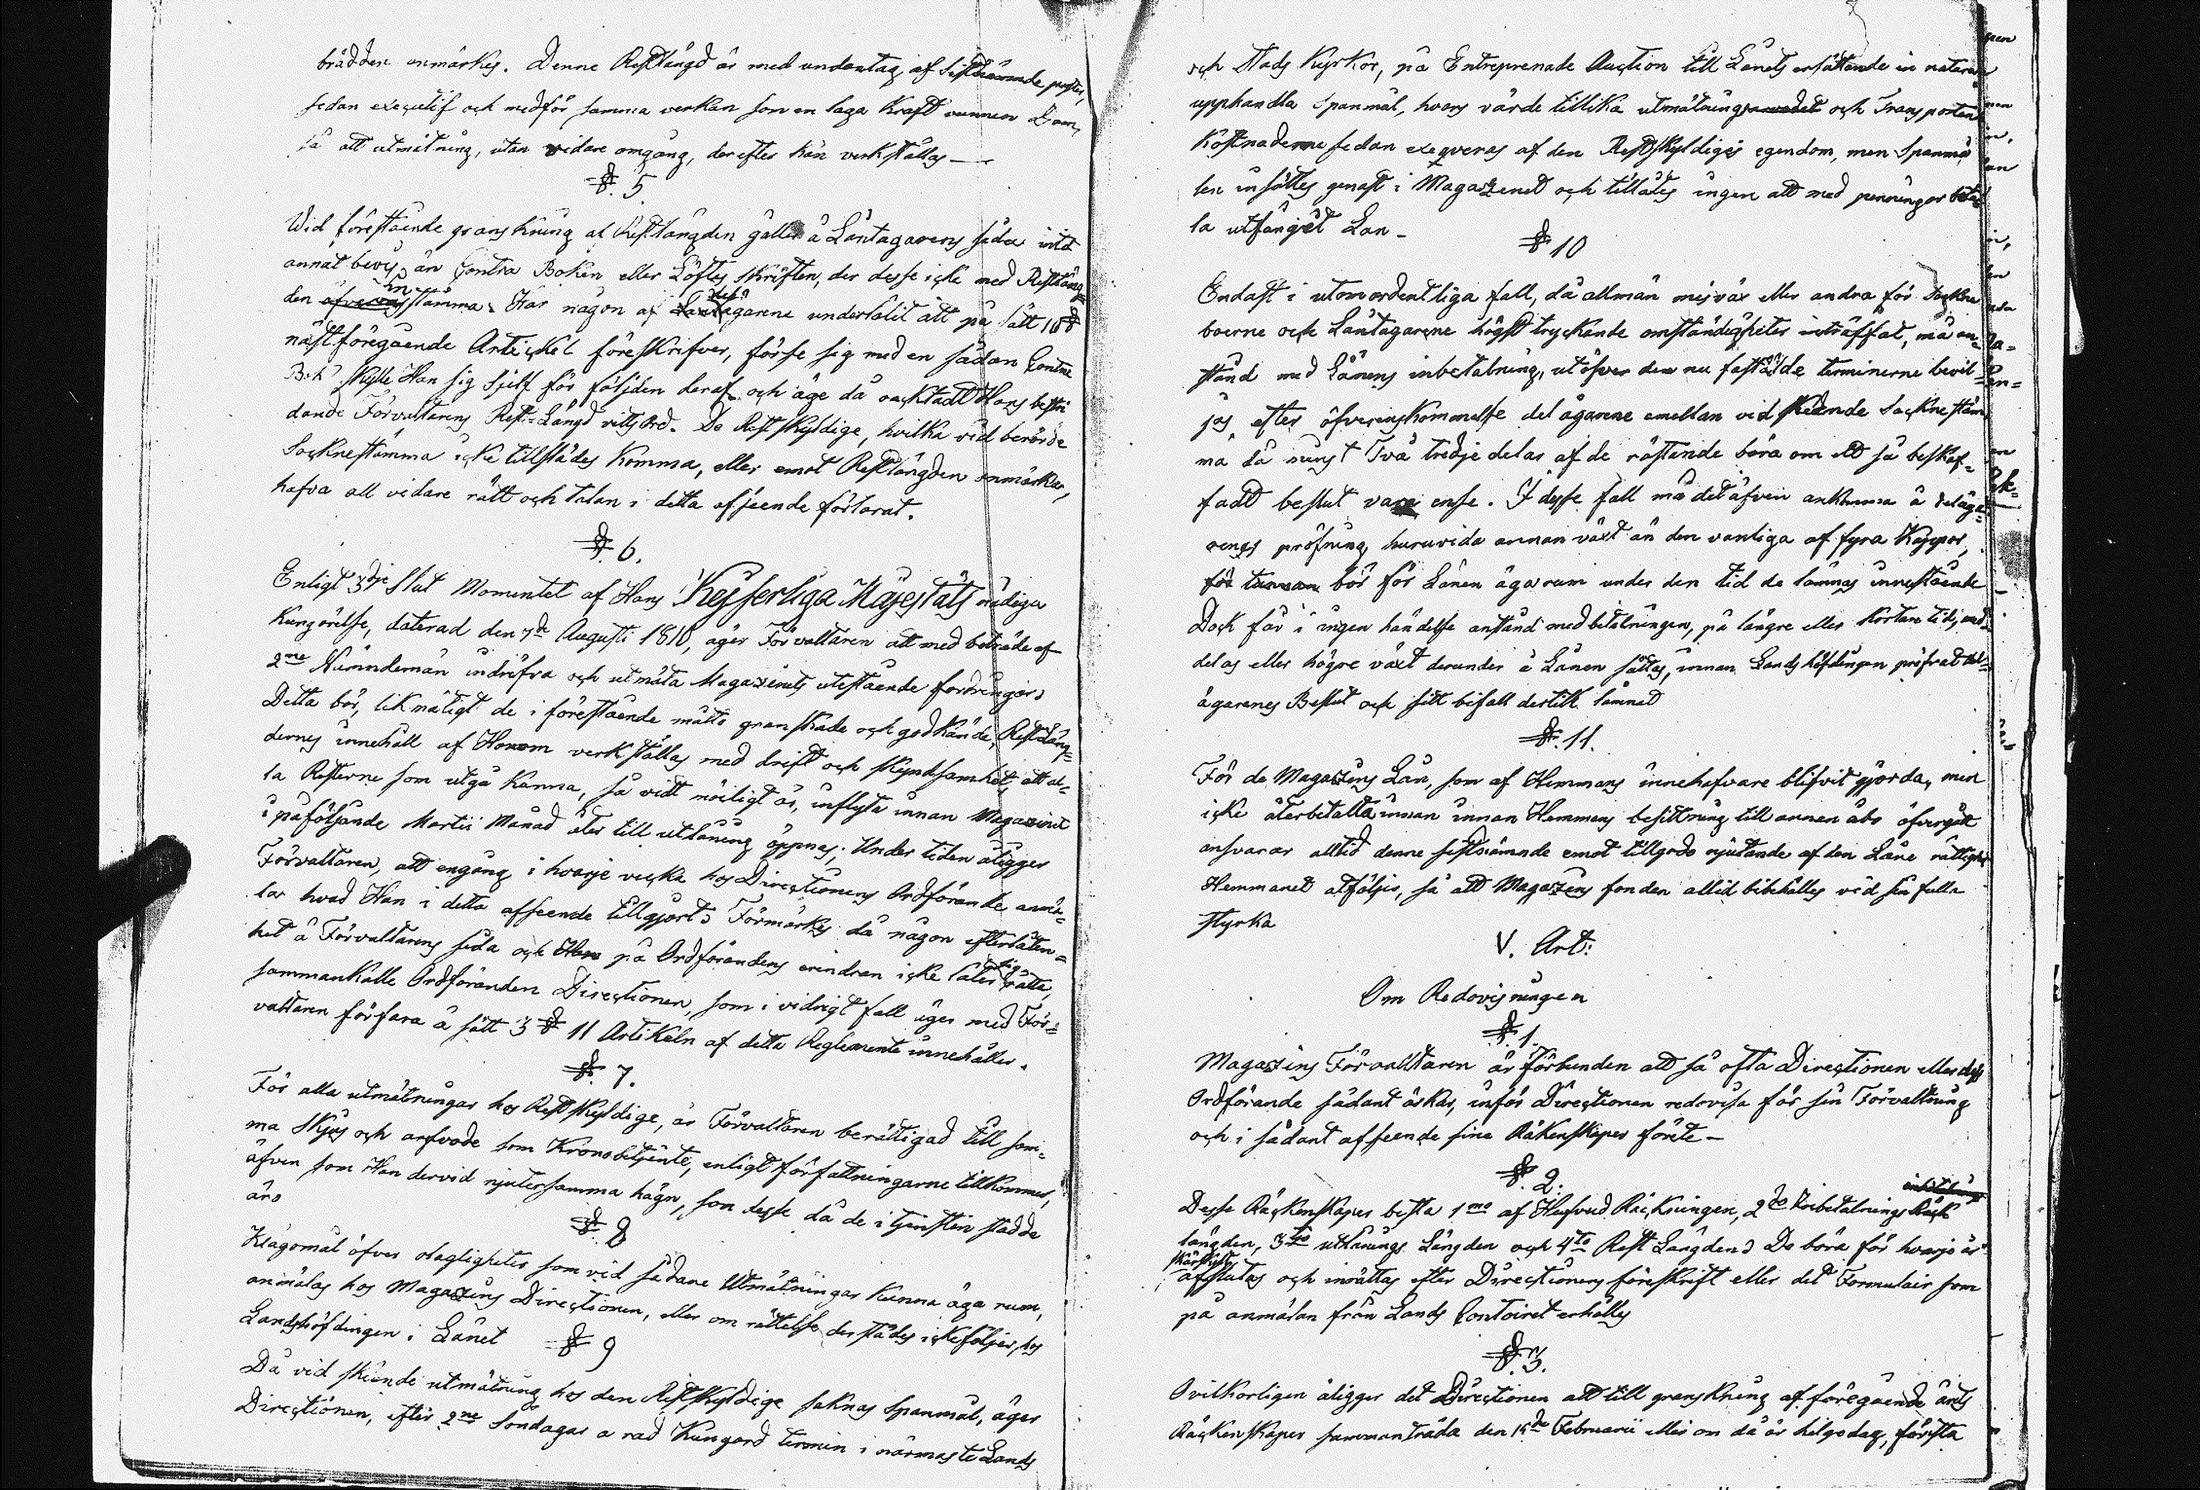 brädden anmärkes. Denne Restlängd är med undantag af sistnämnde poster,
sedan executif och medför samma verkan som en laga Kraft vunnen Dom,
så att utmätning, utan vidare omgång, derefter kan verkställas —
§. 5
Wid förestående granskning af Restlängden gäller å Låntagarens sida intet
annat bevis än Contra Boken eller Löftes Skriften, der desse icke med Restläng-
den instämma. Har någon af Låntagarene underlåtit att på sätt 10 §
nästföregående Artickel föreskrifver, förse sig med en sådan Contra
Bok skylle Han sig sjelf för följden deraf och äge då oacktadt Hans bestri
dande Förvaltarens Rest-Längd vitsord. De Restskyldige, hvilka vid berörde
Socknestämma icke tillstädes komma, eller emot Restlängden anmärka,
hafva all vidare rätt och talan i detta afseende förlorat.
§. 6.
Enligt 3dje Slut Momentet af Hans Kejserliga Majestäts nådiga
Kungörelse, daterad den 7de Augusti 1810, äger Förvaltaren att med biträde af
2ne Nämndemän indrifva och utmäta Magazinets utestående fordringar
Detta bör, likmätigt de i förestående måtto granskade och godkände Restläng-
dernes innehåll af Honom verkställas med drift och skyndsamhet, att al-
la Resterne som utgå kunna, så vidt möiligt är, inflyta innan Magazinet
i påföljande Martii Månad åter till utlåning öppnas; Under tiden åligger
Förvaltaren, att engång i hvarje vecka hos Directionens Ordförande anmä-
la hvad Han i detta afseende tillgjort. Förmärkes då någon efterlåten-
het å Förvaltarens sida och Han på Ordförandens erindran icke låter sig rätta,
sammankalle Ordföranden Directionen, som i vidrigt fall äger med För-
valtaren förfara å sätt 3 § 11 Artikeln af detta Reglemente innehåller.
§. 7.
För alla utmätningar hos Restskyldige, är Förvaltaren berättigad till sam-
ma Skjuts och arfvode som Kronobetjente, enligt författningarne tillkommer,
äfven som Han dervid njuter samma hägn, som desse då de i tjensten stadde
äro
§ 8
Klagomål öfver olagligheter som vid sådane Utmätningar kunna äga rum,
anmälas hos Magazins Directionen, eller om rättelse derstädes icke följer, hos
Landshöfdingen i Länet
§ 9
Då vid skeende utmätning hos den Restskyldige saknas Spanmål, äger
Directionen, efter 2ne Söndagar a rad Kungjord termin i närmaste Lands
och Stads Kyrkor, på Entreprenade Auction till Lånets ersättande in natura
upphandla Spanmål, hvars värde tillika utmätnings och Transporten
Kostnaderne sedan exeqveras af den Restskyldiges egendom, men Spanmå
len insättes genast i Magazinet och tillåtes ingen att med penningar beta
la utfånget Lån -
§ 10
Endast i utomordentliga fall, då allmän misväx eller andra för Sockne
boerne och Låntagarene högst tryckande omständigheter inträffat, må an-
stånd med Lånens inbetalning, utöfver de nu faststälde terminerne bevil-
jas, efter öfverenskommelse delägarene emellan vid skeende Socknestäm
ma då minst Två tredje delar af de röstande böra om ett så beskaf-
fadt beslut vara ense. I desse fall må det äfven ankomma å deläga-
renes pröfning huruvida annan växt än den vanliga af fyra Kappor,
för tunnan bör för Lånen äga rum under den tid de lämnas innestående
Dock får i ingen händelse anstånd med betalningen, på längre eller kortare tid, med-
delas eller högre växt derunder å Lånen sättas, innan Landshöfdingen pröfvat del-
ägarenes Beslut och sitt bifall dertill lämnat
§. 11.
För de Magazins Lån, som af Hemmans innehafvare blifvit gjorda, men
icke återbetalta innan innan Hemmans besittning till annan åbo öfvergått
ansvarar alltid denne sistnämnde emot tillgodo njutande af den Låne rättighet
Hemmanet åtföljer, så att Magazins fonden altid bibehålles vid sin fulla
styrka
V. Art:
Om Redovisningen
§. 1.
Magazins Förvaltaren är förbunden att så ofta Directionen eller dess
Ordförande sådant äskar, inför Directionen redovisa för sin Förvaltning
och i sådant afseende sine Räkenskaper förete —
§. 2.
Desse Räckenskaper bestå 1mo af Hufvud Räckningen, 2do Inbetalnings
längden, 3tio utlånings Längden och 4to Rest Längden. De böra för hvarje år
särskildt afslutas och inrättas efter Directionens föreskrift eller det Formulair som
på anmälan från Lands Contoiret erhålles
§. 3.
Ovilkorligen åligger det Directionen att till granskning af föregående årets
Räckenskaper sammanträda den 15de Februarii eller om då är helgedag, första